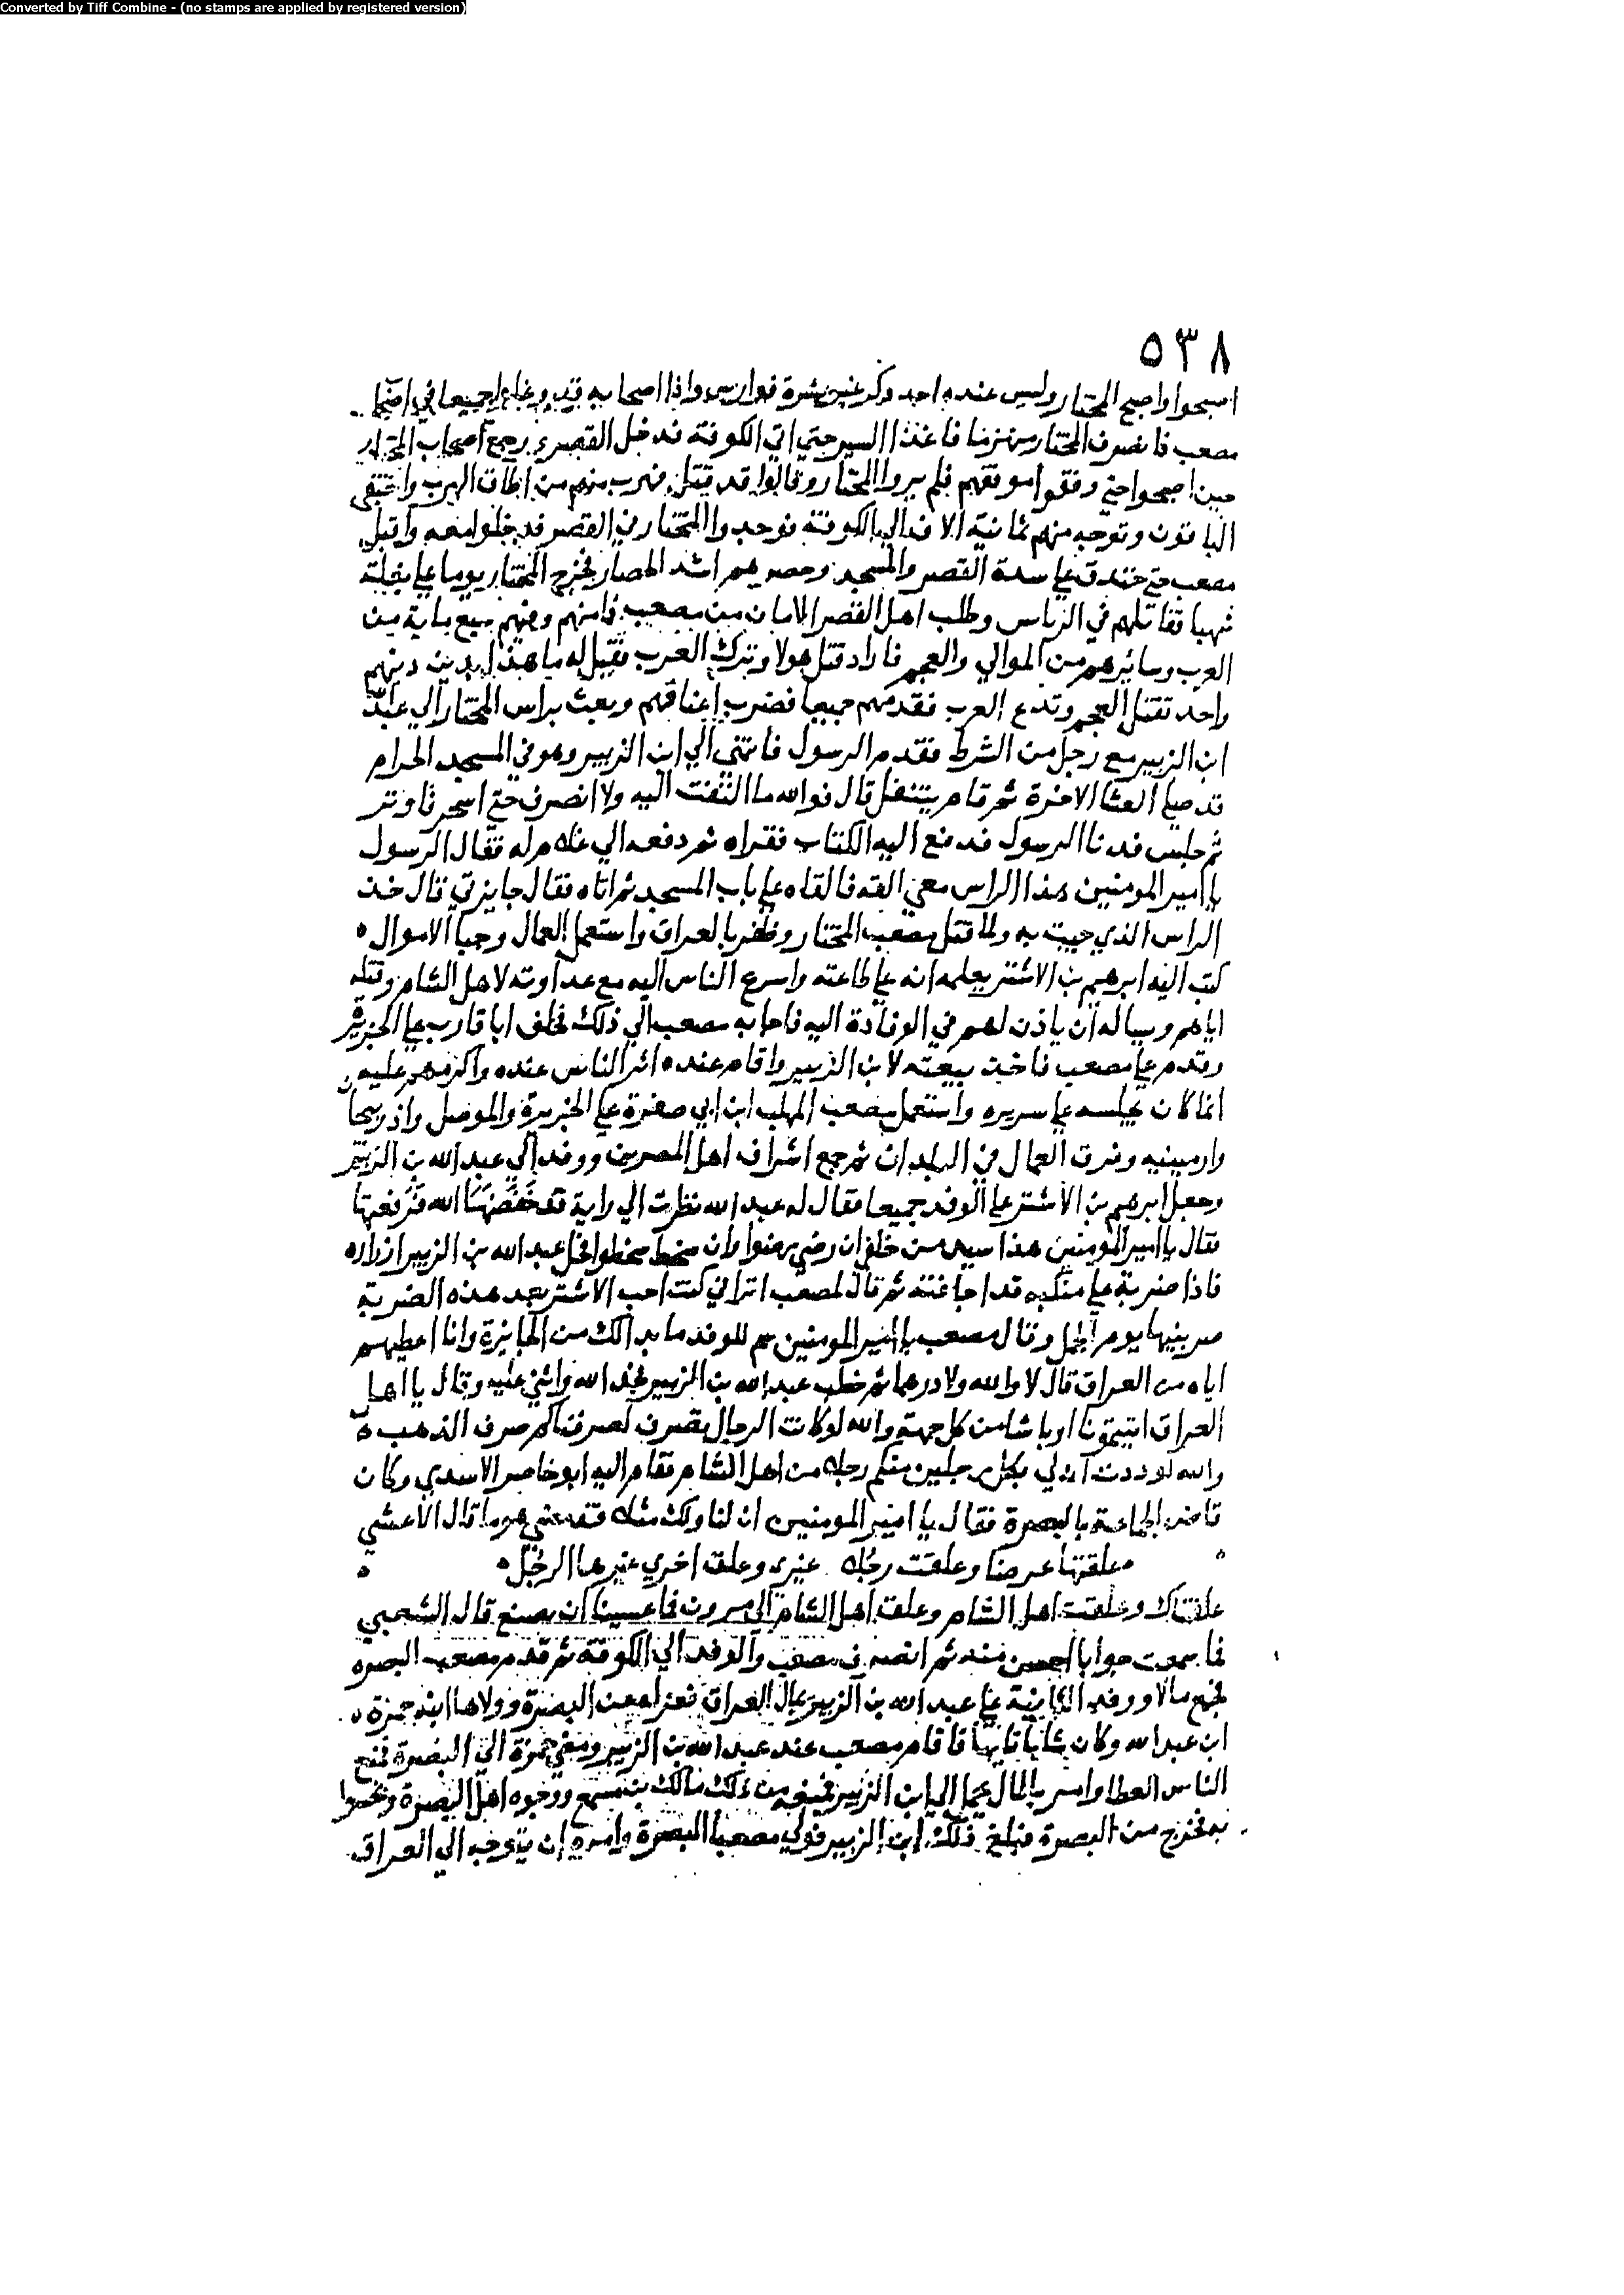 Converted by Tiff Combine - (no stamps are applied by registered version)
٥٣٨
اصبحوا واصبح المختار وليس عنده احد وكر عشرة فوارس واذا اصحابه قد وغلوا جميعا في اصحاب
مصعب فانصرف المختار منهزما فاغذ السير حتي اتي الكوفة فدخل القصر ورجع اصحاب المختار
حين اصبحوا حتي وقفوا موقفهم فلم يروا المختار وقالوا قد قتل فهرب منهم من اطاق الهرب واختفي
الباقون وتوجه منهم ثمانية الاف الي الكوفة فوجدوا المختار في القصر فدخلوا معه واقبل
مصعب حتي خندق علي سدة القصر والمسجد وحصرهم اشد الحصار فخرج المختار يوما علي بغلة
شهبا فقاتلهم في الزياتين وطلب اهل القصر الامان من مصعب فامنهم وفيهم سبع ماية من
العرب وسائرهم من الموالي والعجم فاراد قتل هولا وترك العرب فقيل له ما هذا بدين دينهم
واحد تقتل العجم وتدع العرب فقدمهم جميعا فضرب اعناقهم وبعث براس المختار الي عبد الله
ابن الزبير مع رجل من الشرط فقدم الرسول فانتهي الي ابن الزبير وهو في المسجد الحرام
قد صلي العشا الاخرة ثم قام يتنفل قال فوالله ما التفت اليه ولا انصرف حتي اسحر فاوتر
ثم جلس فدنا الرسول فدفع اليه الكتاب فقراه ثم دفعه الي غلام له فقال الرسول
يا امير المومنين هذا الراس معي القه فالقاه علي باب المسجد ثم اتاه فقال جايزتي قال خذ
الراس الذي جيت به ولما قتل مصعب المختار وظفر بالعراق واستعمل العمال وجبا الاموال
كتب اليه ابرهيم بن الاشتر يعلمه انه علي طاعته واسرع الناس اليه مع عداوته لاهل الشام وقتله
اياهم وساله ان ياذن لهم في الوفادة اليه فاجابه مصعب الي ذلك فخلف ابا قارب علي الجزيرة
وقدم علي مصعب فاخذ بيعته لابن الزبير واقام عنده اثر الناس عنده واكرمهم عليه
انما كان يجلسه علي سريره واستعمل مصعب المهلب ابن ابي صفرة علي الجزيرة والموصل واذربيجان
وارمينيه وفرق العمال في البلدان ثم جمع اشراف اهل المصرين ووفد الي عبد الله بن الزبير
وجعل ابرهيم بن الاشتر علي الوفد جميعا فقال له عبد الله نظرت الي راية قد خَفَضَهَا الله فَرَفعتها
فقال يا امير المومنين هذا سيد من خلفي ان رضي رضوا وان سخط سخطوا فحل عبد الله بن الزبير ازراره
فاذا ضربة علي منكبه قد اجافته ثم قال لمصعب اتراني كنت احب الاشتر بعد هذه الضربة
ضربنيها يوم الجمل وقال مصعب يا امير المومنين سم للوفد ما بدا لك من الجايزة وانا اعطيهم
اياه من العراق قال لا والله ولا درهما ثم خطب عبد الله بن الزبير فحمد الله واثني عليه وقال يا اهل
العراق اتيتمونا اوباشا من كل جهة والله لو كانت الرجال تصرف لصرفتكم صرف الذهب
والله لوددت ان لي بكل رجلين منكم رجلا من اهل الشام فقام اليه ابو خاضر الاسدي وكان
قاضي الجماعة بالبصرة فقال يا امير المومنين ان لنا ولك مثلا قد مضي هو ما قال الاعشي
علقتها عرضا وعلقت رجُلا غيري وعلق اخري غيرها الرجُلُ
علقناك وعلقت اهل الشام وعلق اهل الشام الي مروان فما عسينا ان نصنع قال الشعبي
فما سمعت جوابا احسن منه ثم انصرف مصعب والوفد الي الكوفة ثم قدم مصعب البصره
فجمع مالا ووفد الثانية علي عبد الله بن الزبير بمال العراق فعزله عن البصرة وولاها ابنه حمزة
ابن عبد الله وكان شابا تايها فاقام مصعب عند عبد الله بن الزبير ومضي حمزة الي البصرة فمنع
الناس العطا وامر بالمال يحمل الي ابن الزبير فمنعه من ذلك مالك بن مسمع ووجوه اهل البصرة
فخرج من البصرة فبلغ ذلك ابن الزبير فولي مصعبا البصرة وامره ان يتوجه الي العراق